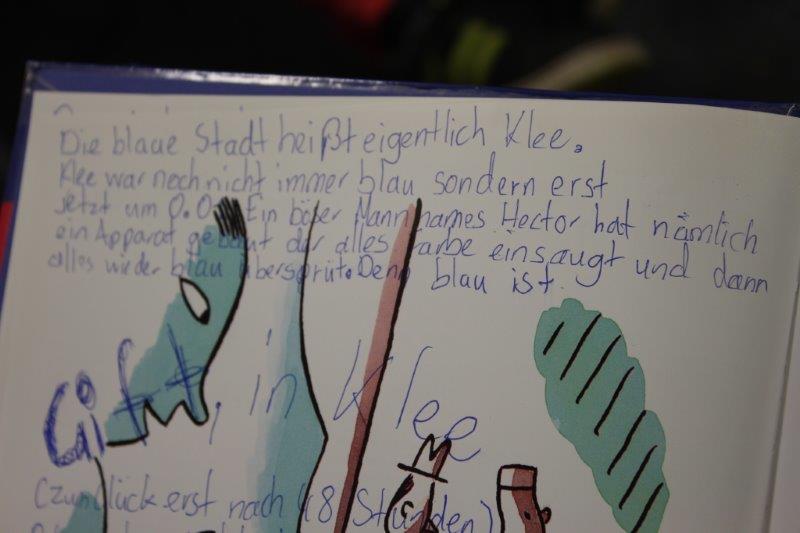 Die blaue Stadt heißt eigentlich Klee.
Klee war noch nicht immer blau sondern erst
jetzt um 0.0 Ein böser Mann names Hector hat nämlich
ein Apparat gebaut der alles Farbe einsaugt und dann
alles wieder blau übersprüt. Denn blau ist.
Gift, in Klee
(zum Glück erst nach 48 Stunden)